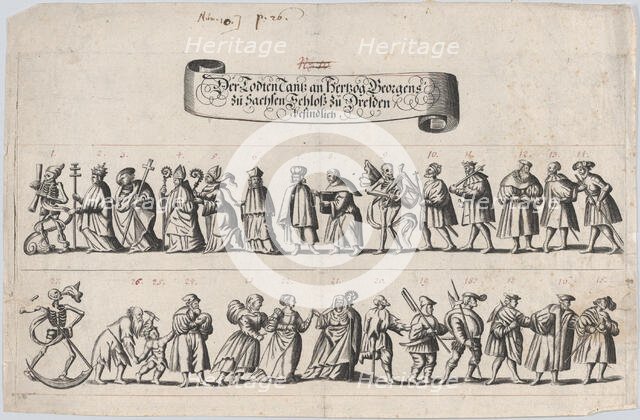 Num. 10. ] p. 26.
Der Todten Tantz an Hertzog Georgens
zu Sachsen Schloß zu Dresden
befindlich
1. 2. 3. 4. 5. 6. 7. 8. 9. 10. 11. 12. 13. 14.
27. 26. 25. 24. 23. 22. 21. 20. 19. 18. 17. 16. 15.
Heritage
Images
Heritage
Images
Heritage
Images
Heritage
Images
Heritage
Images